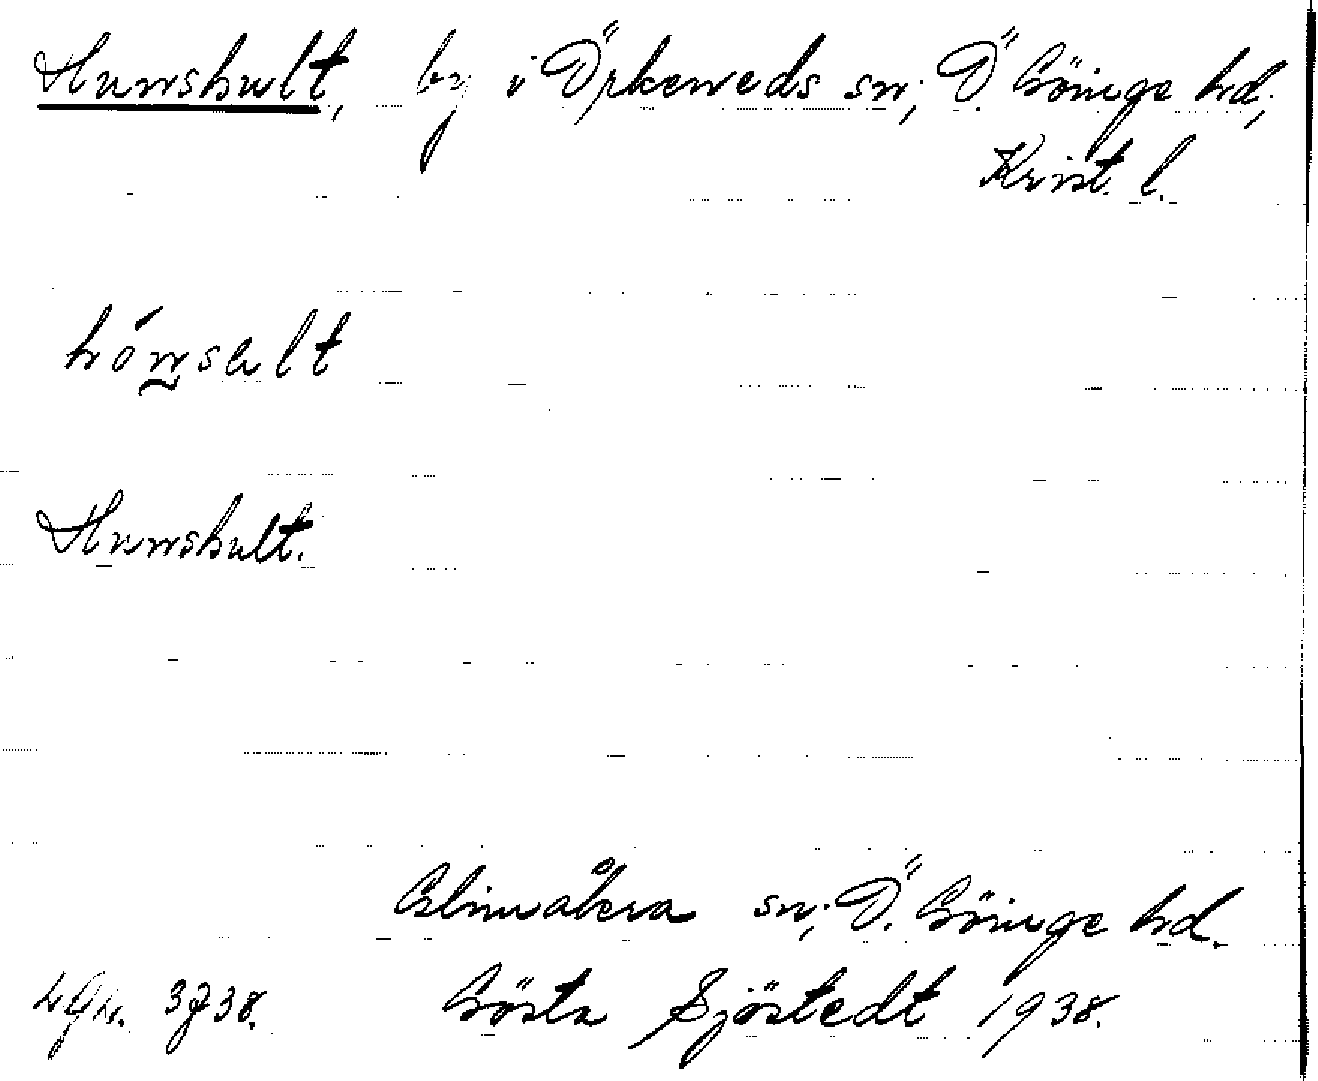 Hunshult, by i Örkeneds sn, Ö. Göinge hd,
Krist. l.
hón̰sɐlt
Hunshult.
Glimåkra sn, Ö. Göinge hd.
Gösta Sjöstedt 1938.